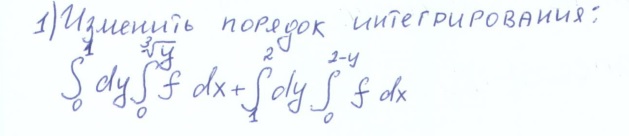 1) Изменить порядок интегрирования:
∫₀¹ dy ∫₀^∛y f dx + ∫₁² dy ∫₀^2-y f dx